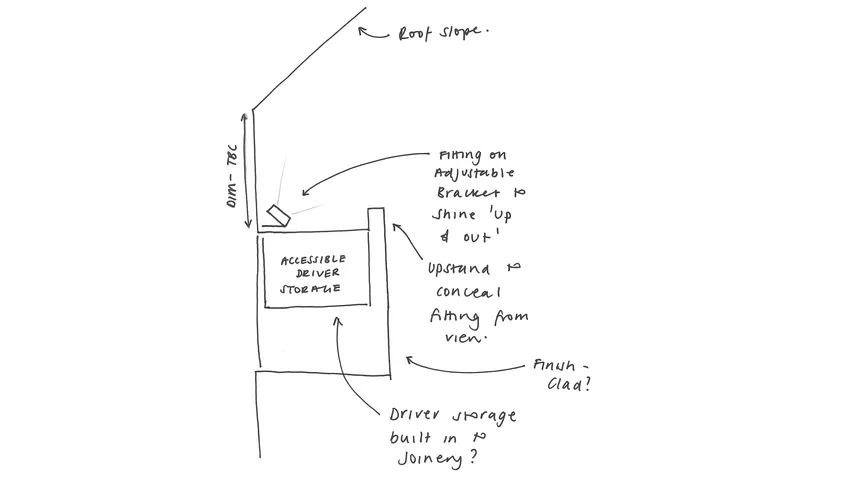 Roof slope.
DIM - TBC
Fitting on
Adjustable
Bracket to
shine 'up
& out'
ACCESSIBLE
DRIVER
STORAGE
upstand to
conceal
fitting from
view.
Finish -
Clad?
Driver storage
built in to
joinery?